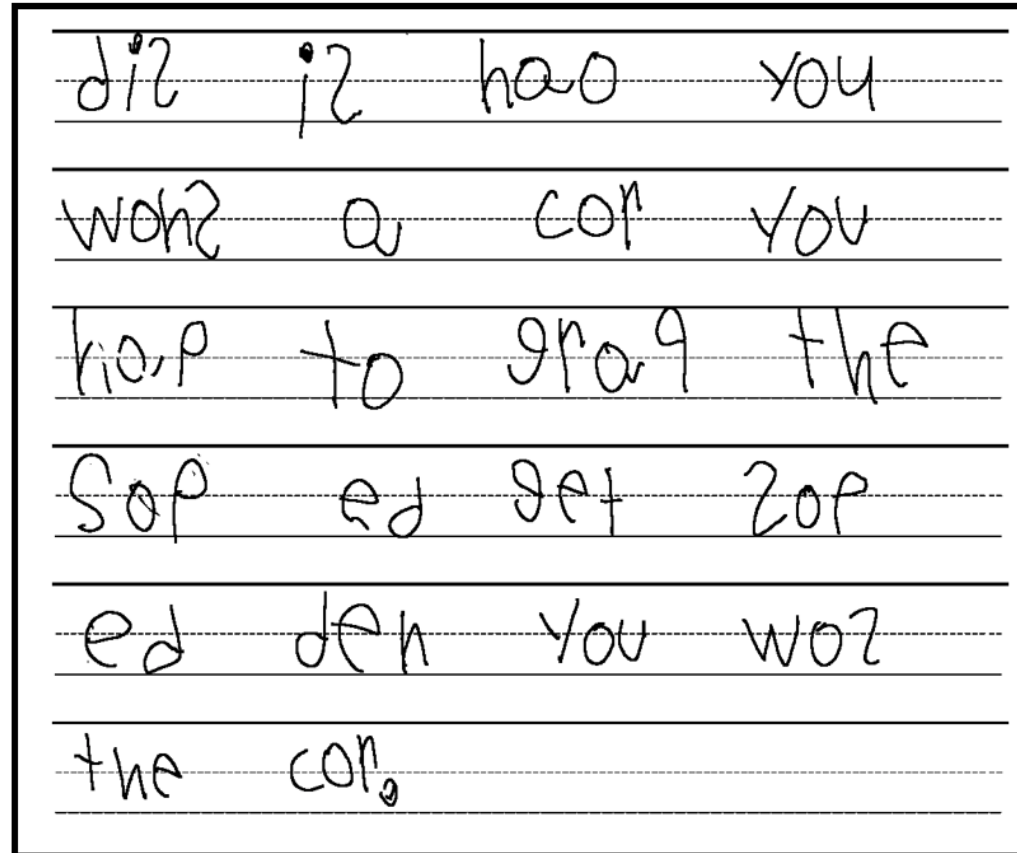 dis is hao you
wons a cor you
hap to grag the
Sop ed get sop
ed den you wos
the cor.